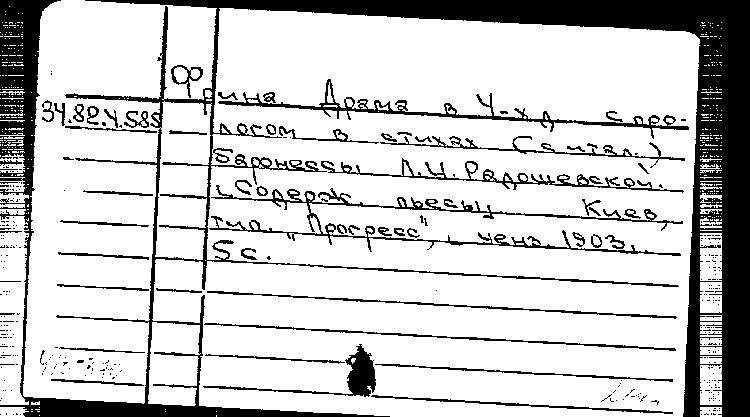 Фрина. Драма в 4-х д. с про-
34.82.4.585
логом в стихах (с итал.)
баронессы Л.И. Радошевской.
[Содерж. пьесы]. Киев,
тип. "Прогресс", ценз. 1903.
5 с.